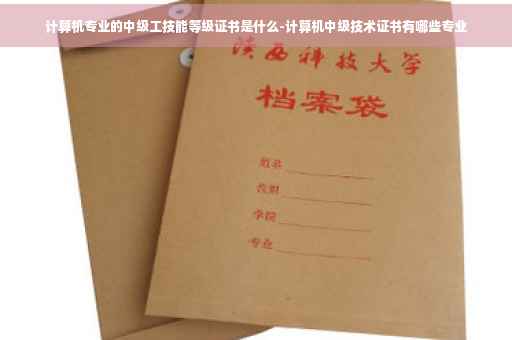 计算机专业的中级工技能等级证书是什么-计算机中级技术证书有哪些专业
陕西科技大学
档案袋
姓名
教职
学院
专业